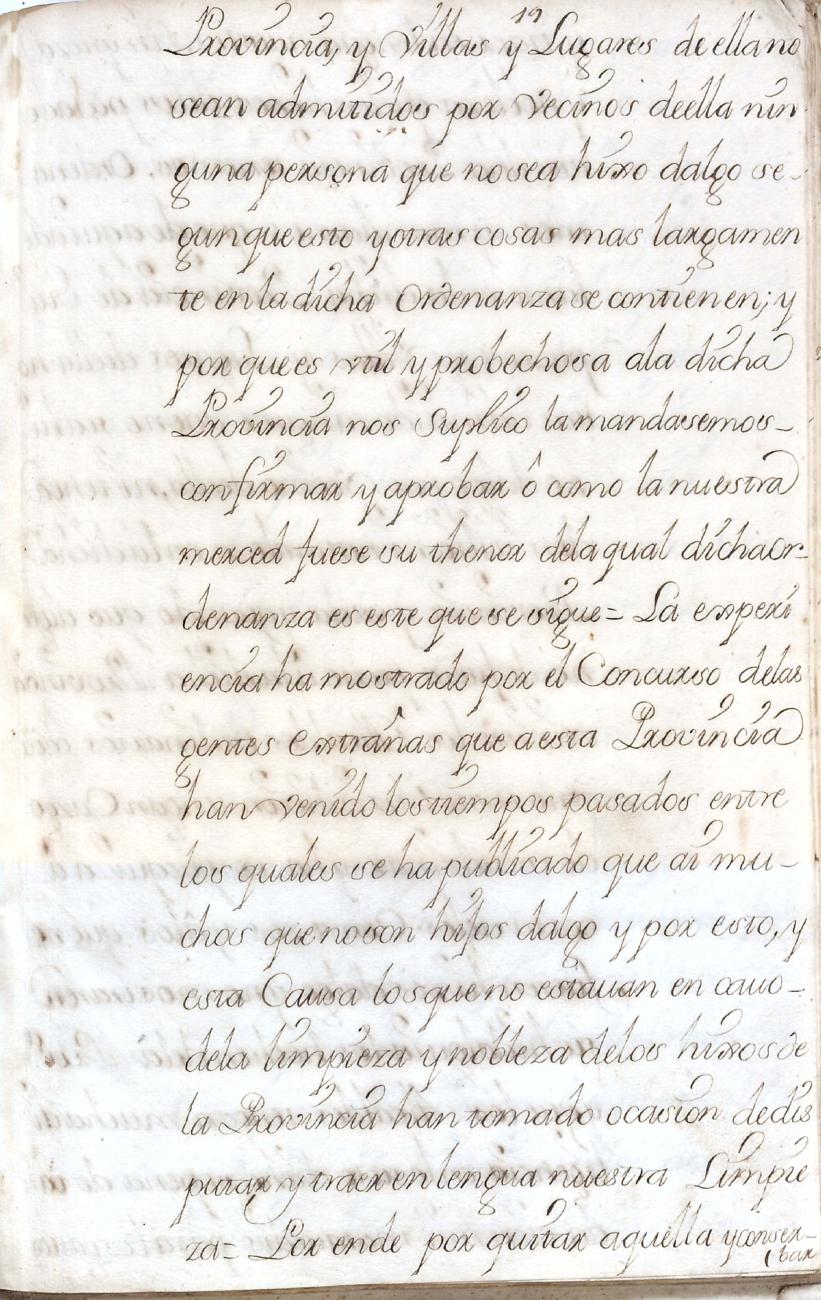 19
Provincia, y Villas y Lugares de ella no
sean admitidos por vecinos deella nin
guna persona que no sea hixo dalgo se-
gun que esto y otras cosas mas largamen
te en la dicha Ordenanza se contienen; y
por que es vtil y probechosa ala dicha
Provincia nos Suplico la mandasemos-
confirmar y aprobar ô como la nuestra
merced fuese su thenor dela qual dicha or-
denanza es este que se sigue= La experi
encia ha mostrado por el Concurso delas
gentes extrañas que a esta Provincia
han venido los tiempos pasados entre
los quales se ha publicado que ai mu-
chos que no son hijos dalgo y por esto, y
esta Causa los que no estauan en cauo-
dela limpieza y nobleza delos hixos de
la Provincia han tomado ocasion de dis
putar y traer en lengua nuestra Limpie
za= Por ende por quitar aquella y conser-
bar